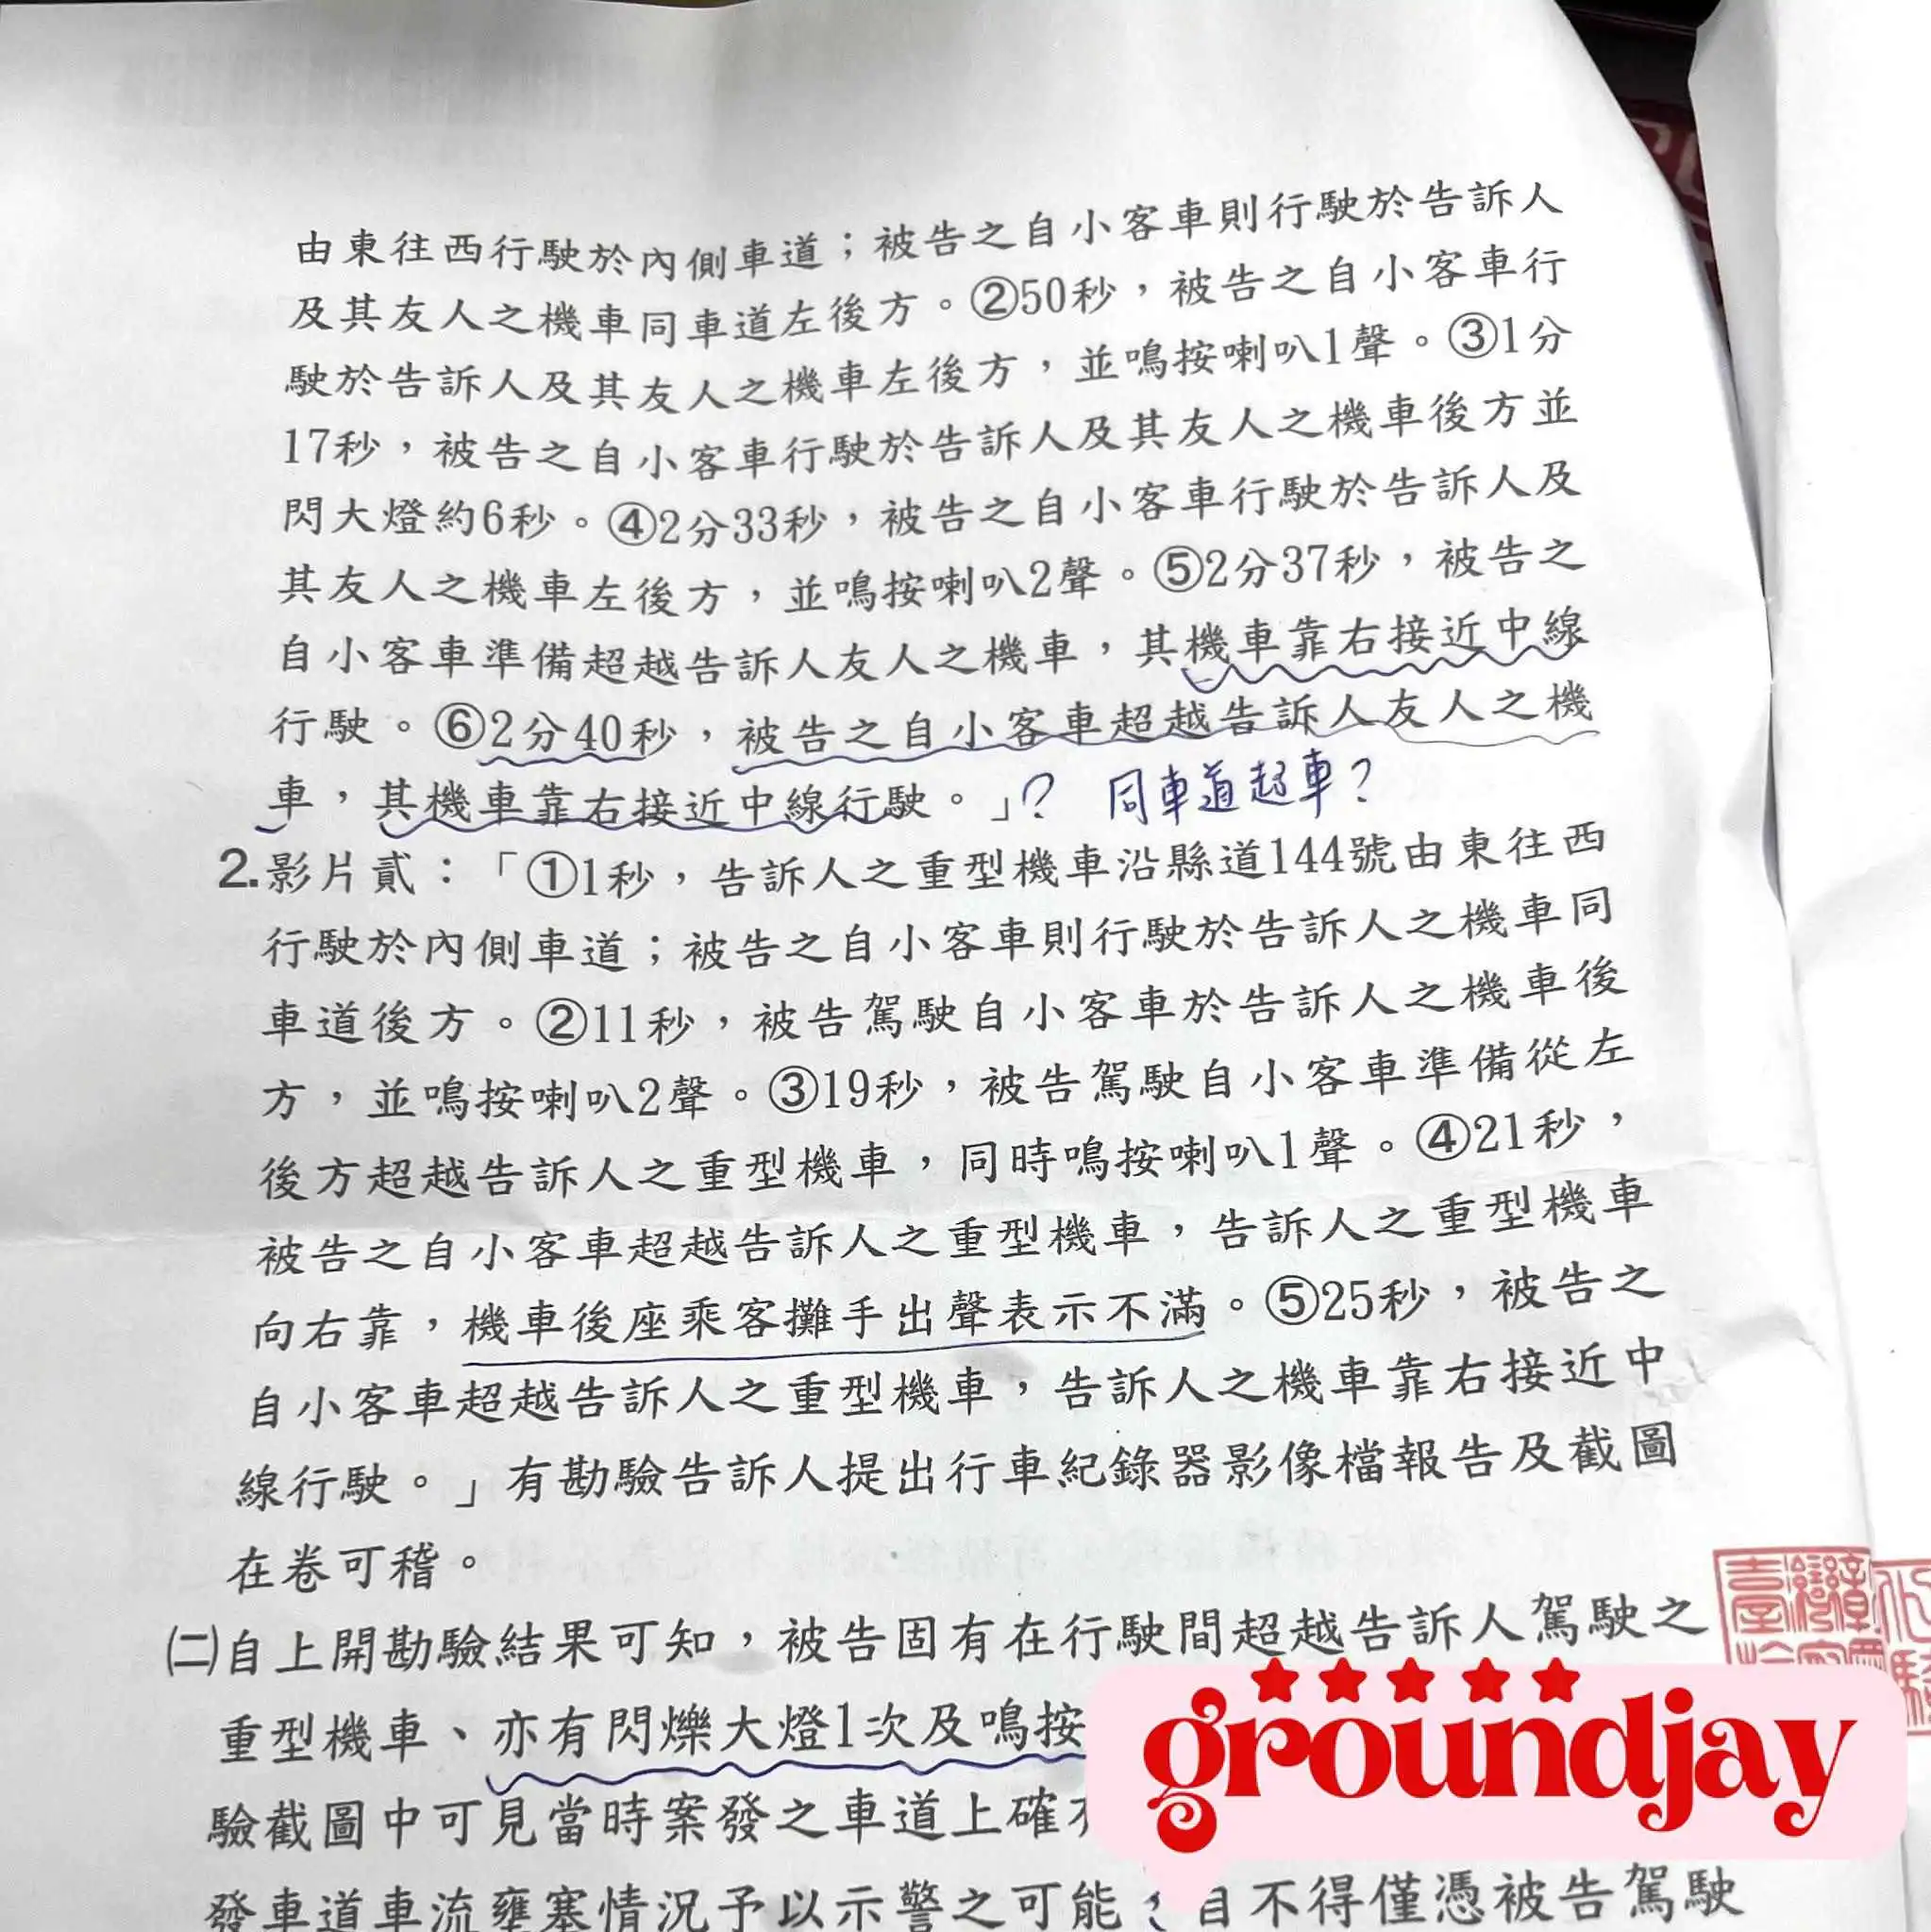 由東往西行駛於內側車道；被告之自小客車則行駛於告訴人
及其友人之機車同車道左後方。②50秒，被告之自小客車行
駛於告訴人及其友人之機車左後方，並鳴按喇叭1聲。③1分
17秒，被告之自小客車行駛於告訴人及其友人之機車後方並
閃大燈約6秒。④2分33秒，被告之自小客車行駛於告訴人及
其友人之機車左後方，並鳴按喇叭2聲。⑤2分37秒，被告之
自小客車準備超越告訴人友人之機車，其機車靠右接近中線
行駛。⑥2分40秒，被告之自小客車超越告訴人友人之機
車，其機車靠右接近中線行駛。」? 同車道超車?
2.影片貳：「①1秒，告訴人之重型機車沿縣道144號由東往西
行駛於內側車道；被告之自小客車則行駛於告訴人之機車同
車道後方。②11秒，被告駕駛自小客車於告訴人之機車後
方，並鳴按喇叭2聲。③19秒，被告駕駛自小客車準備從左
後方超越告訴人之重型機車，同時鳴按喇叭1聲。④21秒，
被告之自小客車超越告訴人之重型機車，告訴人之重型機車
向右靠，機車後座乘客攤手出聲表示不滿。⑤25秒，被告之
自小客車超越告訴人之重型機車，告訴人之機車靠右接近中
線行駛。」有勘驗告訴人提出行車紀錄器影像檔報告及截圖
在卷可稽。
㈡自上開勘驗結果可知，被告固有在行駛間超越告訴人駕駛之
重型機車、亦有閃爍大燈1次及鳴按
驗截圖中可見當時案發之車道上確
發車道車流壅塞情況予以示警之可能，自不得僅憑被告駕駛
臺灣彰
groundjay